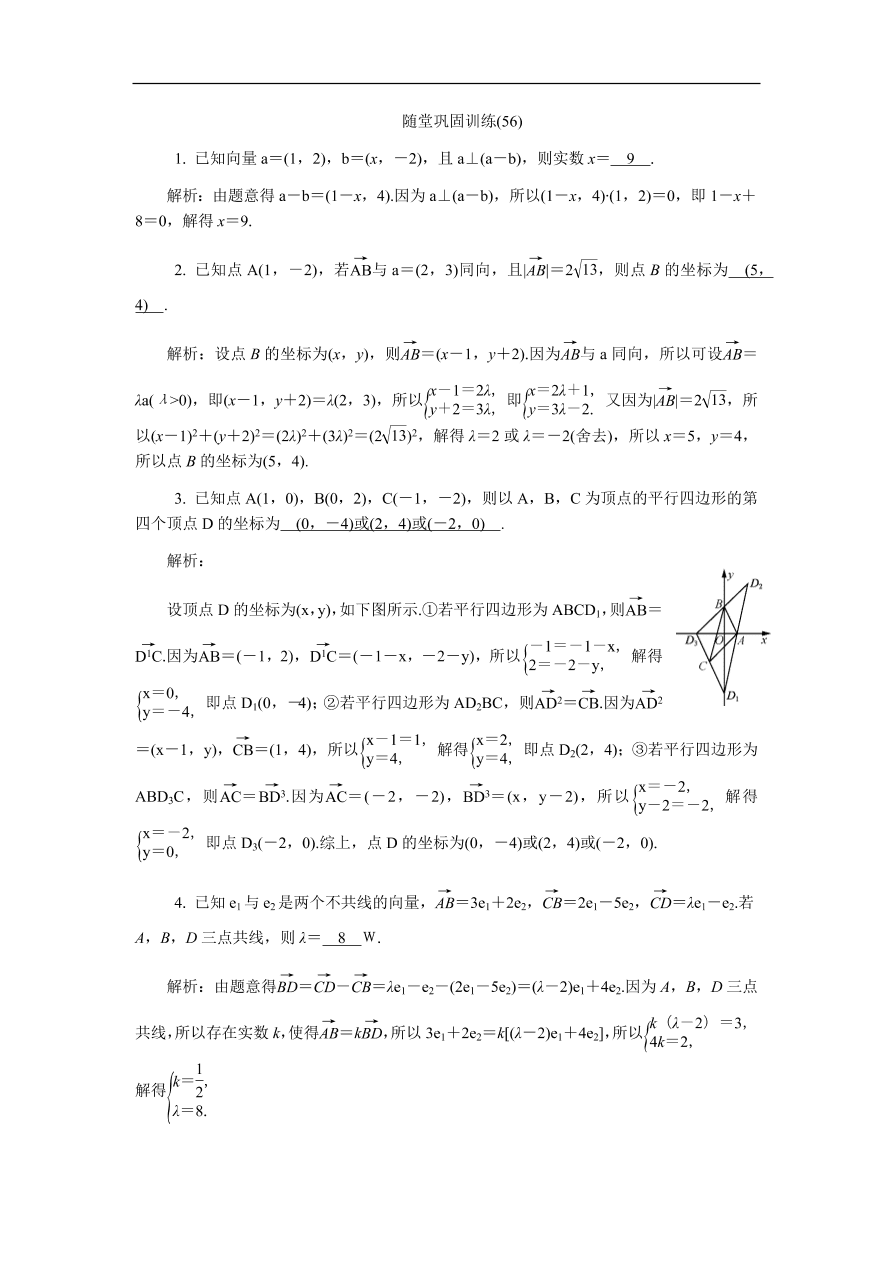 随堂巩固训练(56)
1. 已知向量 a=(1，2)，b=(x，-2)，且 a⊥(a-b)，则实数 x= 9 .
解析：由题意得 a-b=(1-x，4).因为 a⊥(a-b)，所以(1-x，4)·(1，2)=0，即 1-x+
8=0，解得 x=9.
2. 已知点 A(1，-2)，若AB→与 a=(2，3)同向，且|AB→|=2√13，则点 B 的坐标为 (5，
4) .
解析：设点 B 的坐标为(x，y)，则AB→=(x-1，y+2).因为AB→与 a 同向，所以可设AB→=
λa(λ>0)，即(x-1，y+2)=λ(2，3)，所以{x-1=2λ，y+2=3λ，即{x=2λ+1，y=3λ-2. 又因为|AB→|=2√13，所
以(x-1)2+(y+2)2=(2λ)2+(3λ)2=(2√13)2，解得 λ=2 或 λ=-2(舍去)，所以 x=5，y=4，
所以点 B 的坐标为(5，4).
3. 已知点 A(1，0)，B(0，2)，C(-1，-2)，则以 A，B，C 为顶点的平行四边形的第
四个顶点 D 的坐标为 (0，-4)或(2，4)或(-2，0) .
解析：
设顶点 D 的坐标为(x，y)，如下图所示.①若平行四边形为 ABCD1，则AB→=
D1C→.因为AB→=(-1，2)，D1C→=(-1-x，-2-y)，所以{-1=-1-x，2=-2-y，解得
{x=0，y=-4，即点 D1(0，-4)；②若平行四边形为 AD2BC，则AD2→=CB→.因为AD2→
=(x-1，y)，CB→=(1，4)，所以{x-1=1，y=4，解得{x=2，y=4，即点 D2(2，4)；③若平行四边形为
ABD3C，则AC→=BD3→.因为AC→=(-2，-2)，BD3→=(x，y-2)，所以{x=-2，y-2=-2，解得
{x=-2，y=0，即点 D3(-2，0).综上，点 D 的坐标为(0，-4)或(2，4)或(-2，0).
y
D2
B
D3
O
A
x
C
D1
4. 已知 e1 与 e2 是两个不共线的向量，AB→=3e1+2e2，CB→=2e1-5e2，CD→=λe1-e2.若
A，B，D 三点共线，则 λ= 8 W.
解析：由题意得BD→=CD→-CB→=λe1-e2-(2e1-5e2)=(λ-2)e1+4e2.因为 A，B，D 三点
共线，所以存在实数 k，使得AB→=kBD→，所以 3e1+2e2=k[(λ-2)e1+4e2]，所以{k（λ-2）=3，4k=2，
解得{k=1/2，λ=8.